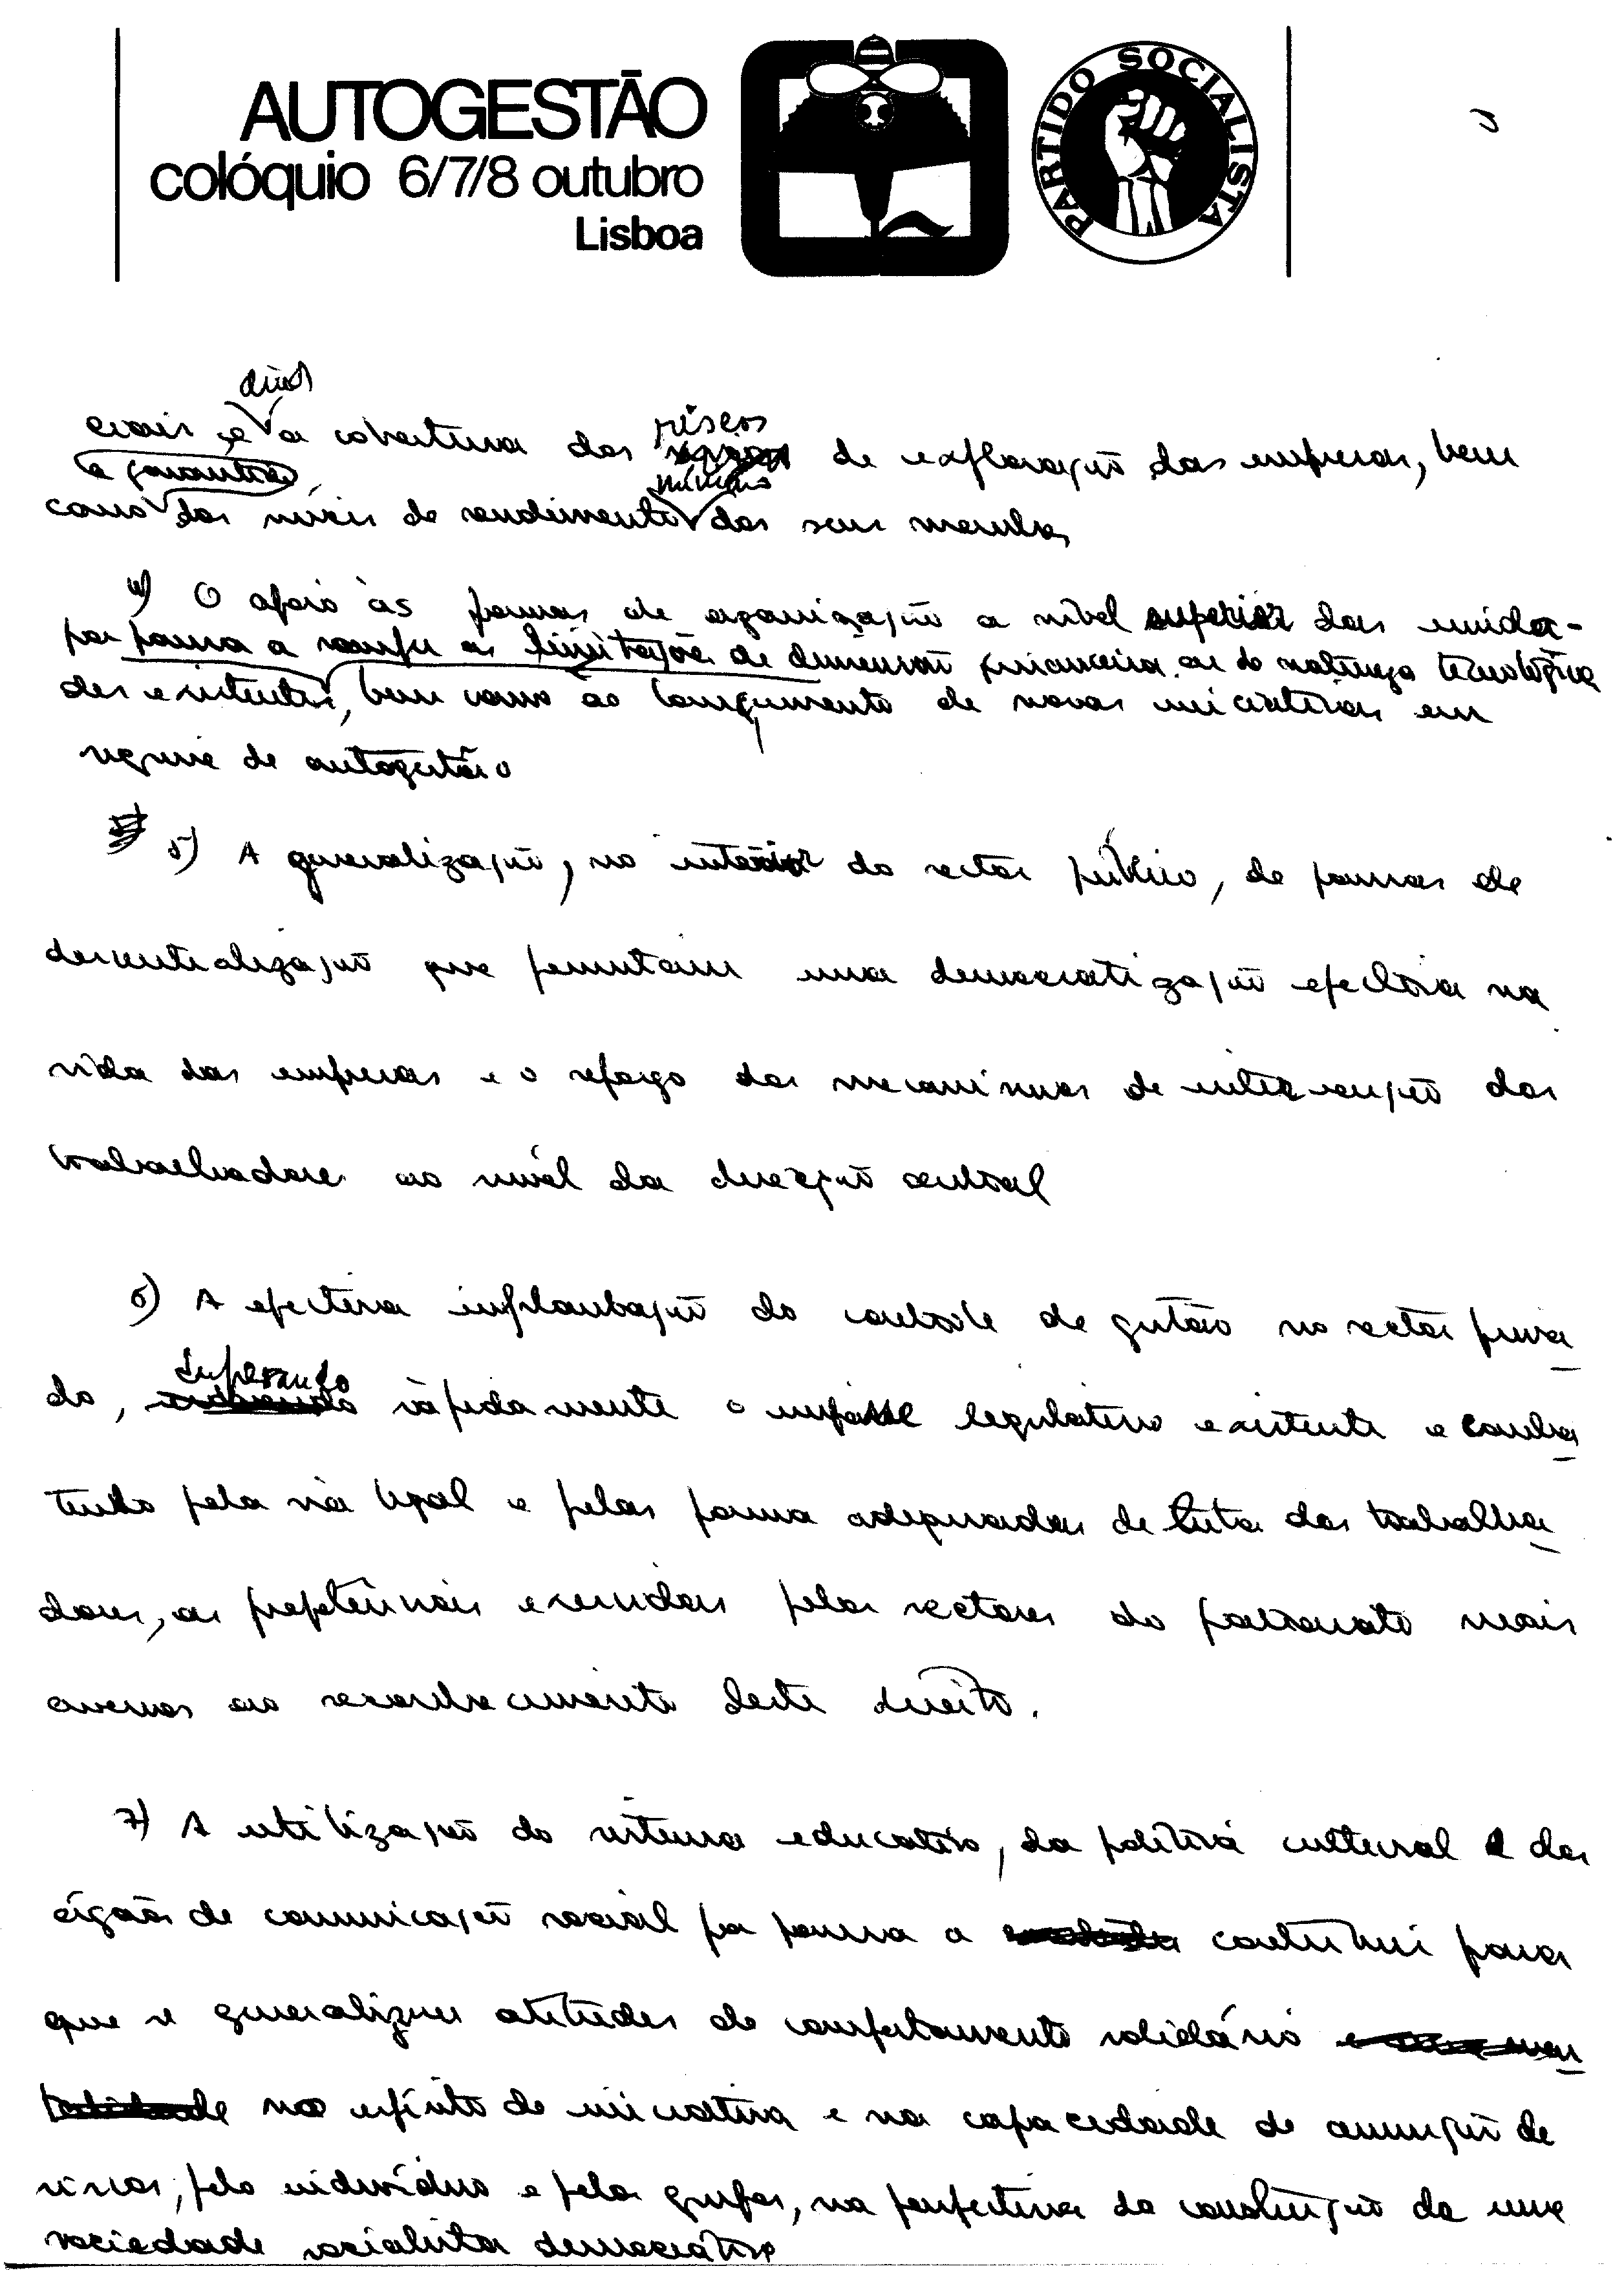 AUTOGESTÃO
colóquio 6/7/8 outubro
Lisboa
PARTIDO SOCIALISTA
ciais, e a cobertura dos riscos de exploração das empresas, bem
a garantia
como dos níveis de rendimento mínimo dos seus membros
4) O apoio às formas de organização a nível superior das unida-
por forma a romper as limitações de dimensão financeira ou de natureza tecnológica
des existentes, bem como ao lançamento de novas iniciativas em
regime de autogestão
5) A generalização, no interior do sector público, de formas de
descentralização que permitam uma democratização efectiva na
vida das empresas e o reforço dos mecanismos de intervenção dos
trabalhadores ao nível da direcção central
6) A efectiva implantação do controle de gestão no sector priva
do, superando rápidamente o impasse legislativo existente e comba
tendo pela via legal e pelas formas adequadas de luta dos trabalha
dores, as prepotências exercidas pelos sectores do patronato mais
avessos ao reconhecimento deste direito.
7) A utilização do sistema educativo, da política cultural e dos
órgãos de comunicação social por forma a contribuir para
que se generalizem atitudes de comportamento solidário
no espírito de iniciativa e na capacidade de assunção de
riscos, pelo indivíduo e pelos grupos, na perspectiva da construção de uma
sociedade socialista democrática